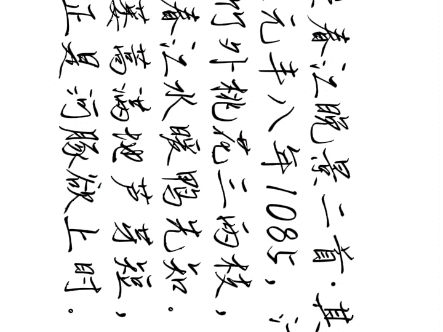 春江晚景二首·其
元丰八年1085,
竹外桃花三两枝,
春江水暖鸭先知。
蒌蒿满地芦芽短,
正是河豚欲上时。